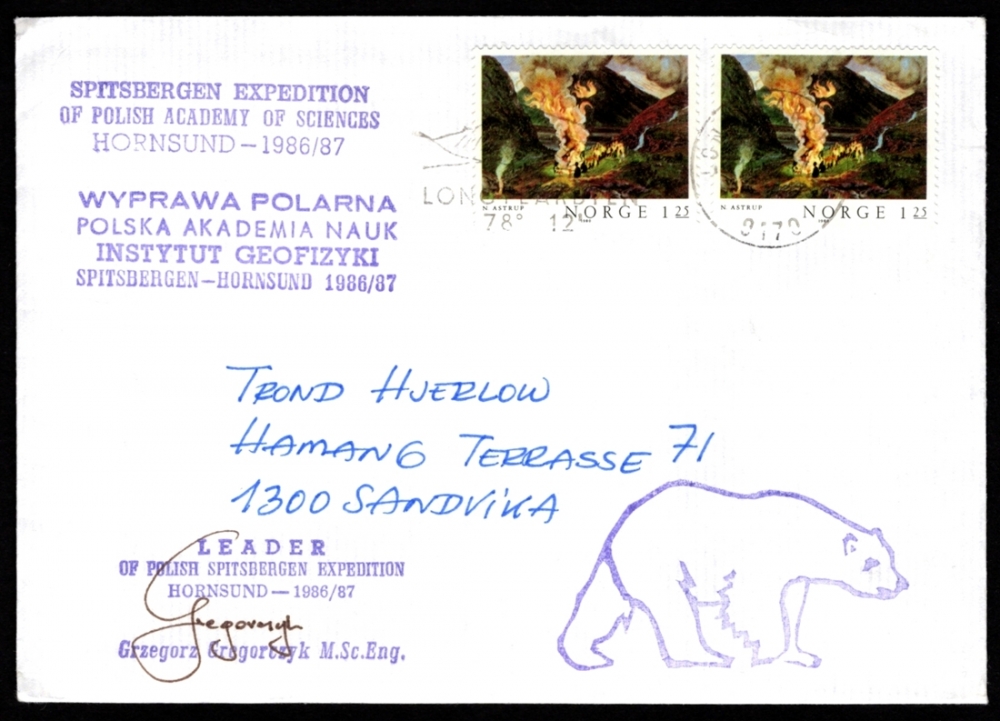 SPITSBERGEN EXPEDITION
OF POLISH ACADEMY OF SCIENCES
HORNSUND – 1986/87
WYPRAWA POLARNA
POLSKA AKADEMIA NAUK
INSTYTUT GEOFIZYKI
SPITSBERGEN – HORNSUND 1986/87
LONGYEARBYEN
78° 12'
N. ASTRUP NORGE 1 25
N. ASTRUP NORGE 1 25
9170
TROND HJERLOW
HAMANG TERRASSE 71
1300 SANDVIKA
LEADER
OF POLISH SPITSBERGEN EXPEDITION
HORNSUND – 1986/87
Gregorczyk
Grzegorz Gregorczyk M.Sc.Eng.